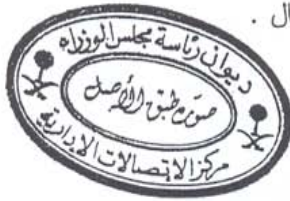 ال .
ديوان رئاسة مجلس الوزراء
صورة طبق الأصل
مركز الاتصالات الإدارية